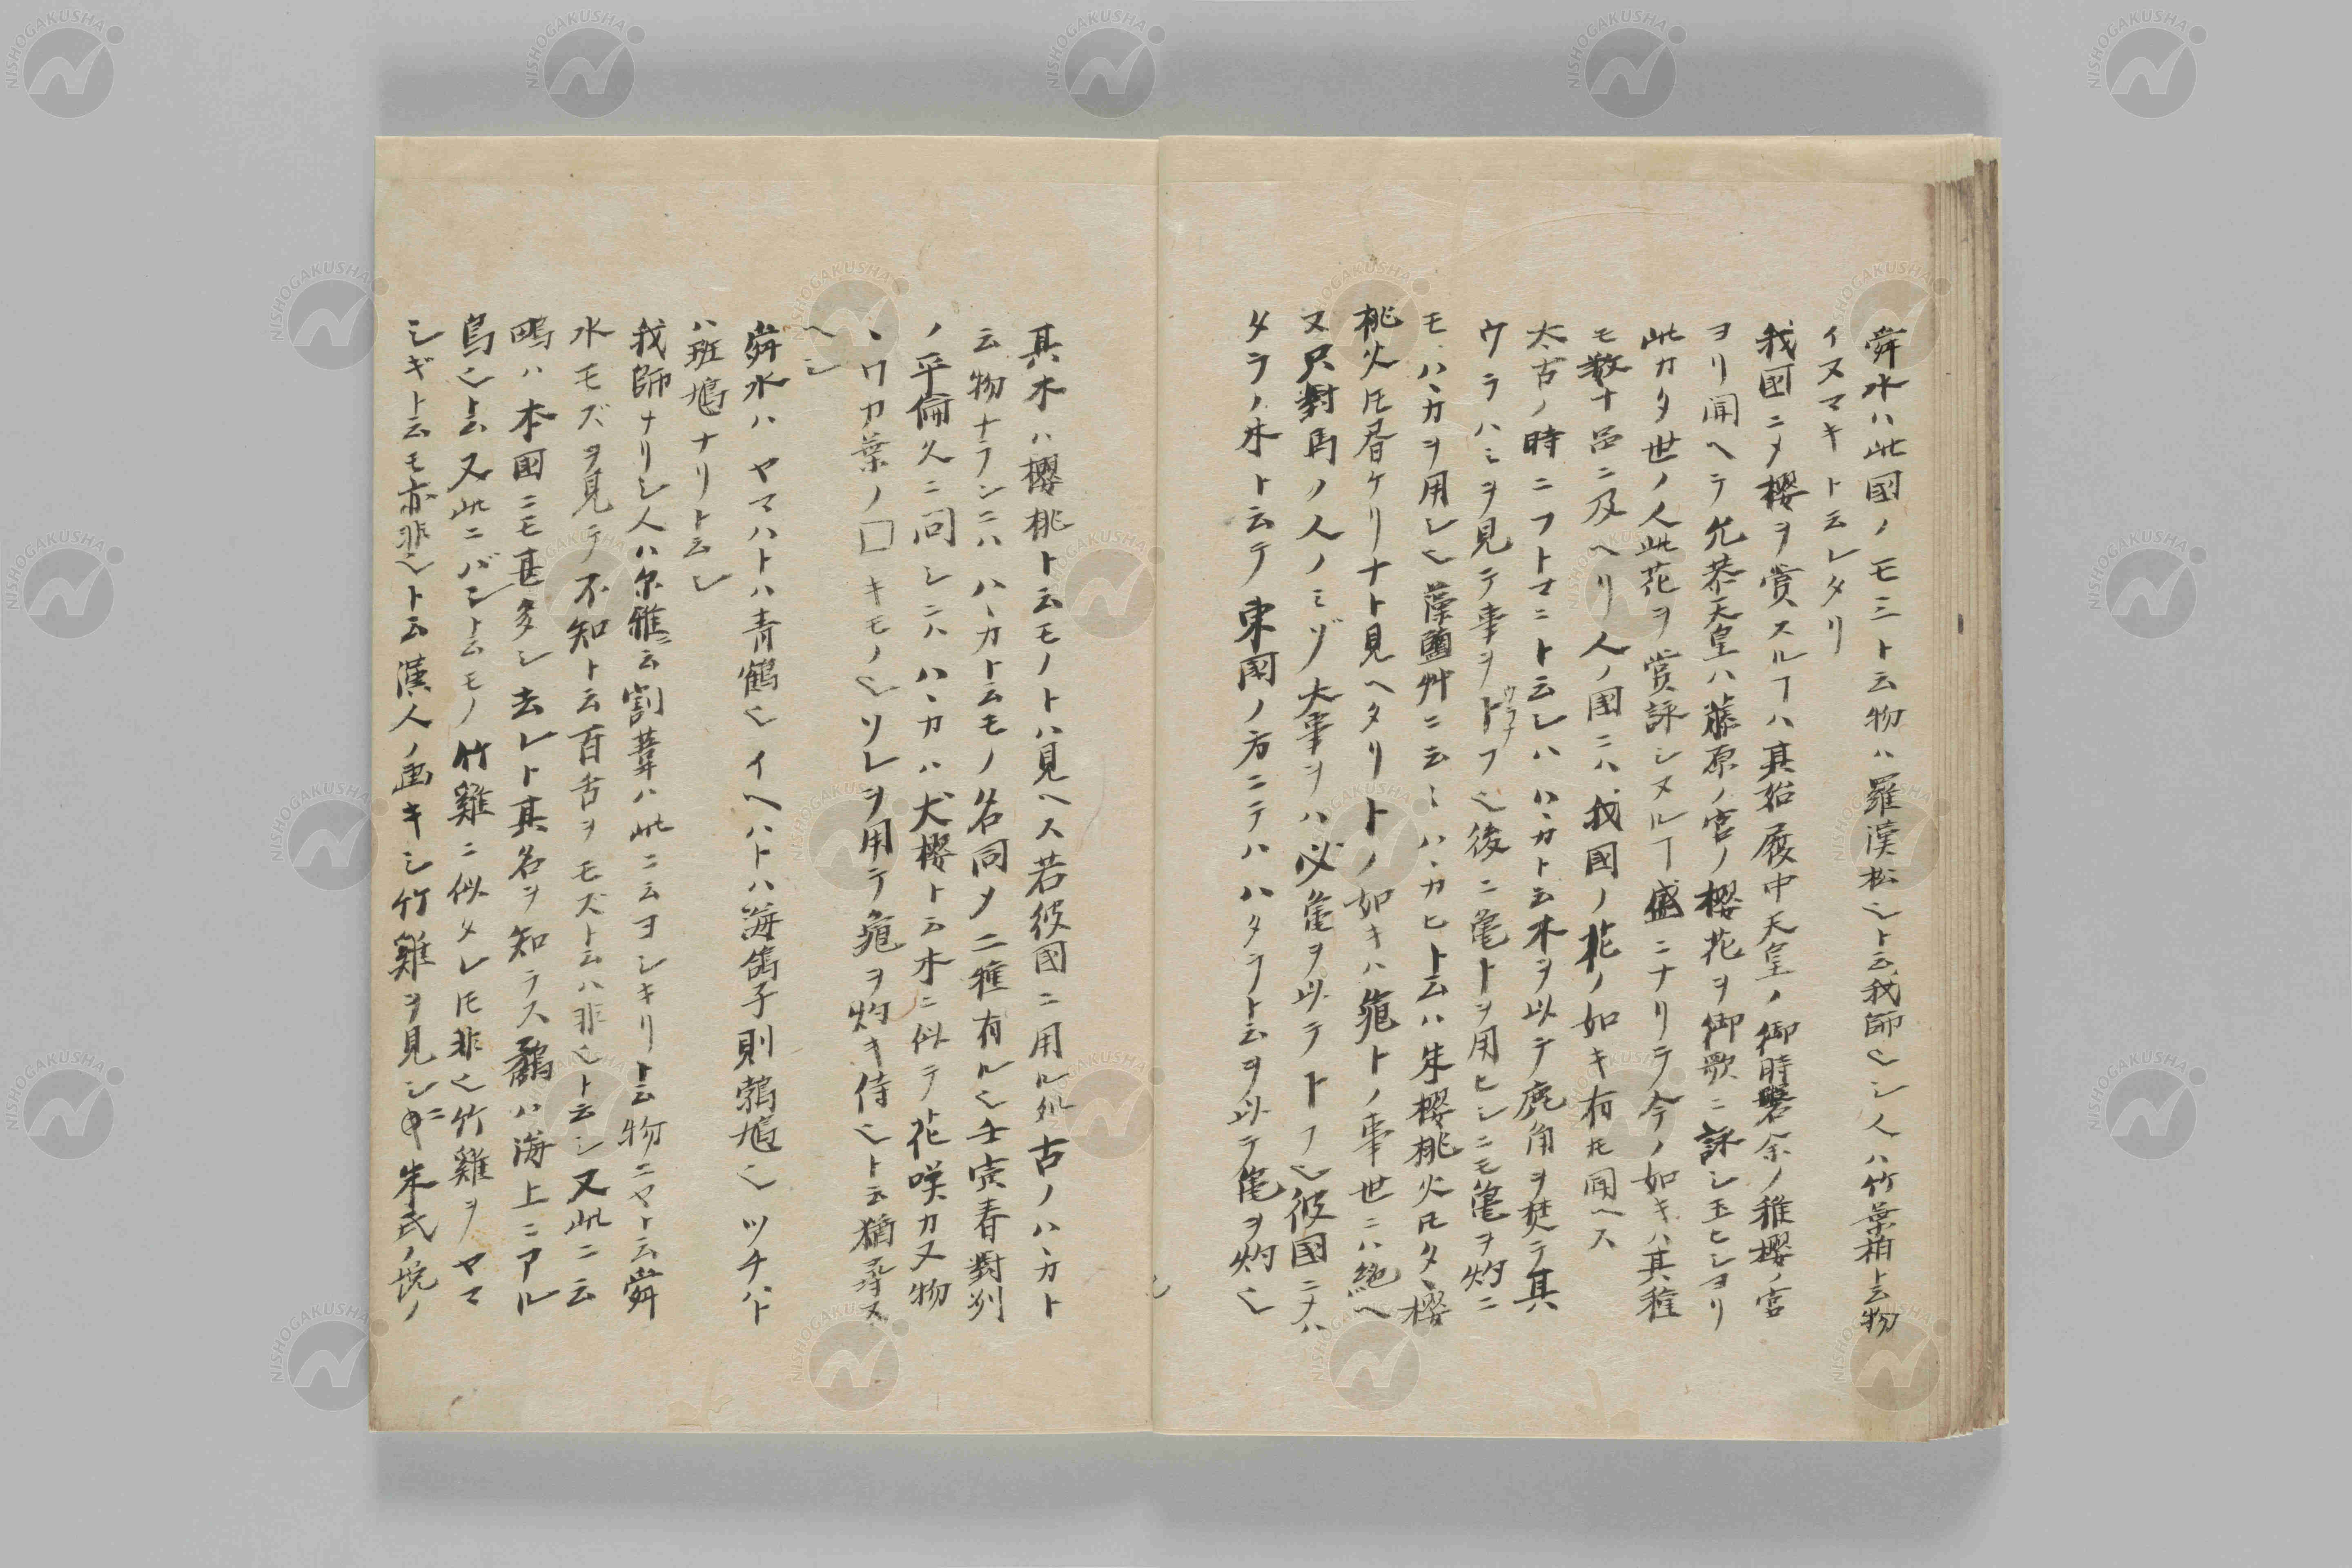 舜水ハ此國ノモミト云物ハ羅漢松也ト云我師也シ人ハ竹葉柏ト云物
イヌマキト云レタリ
我國ニメ櫻ヲ賞スルヿハ其始履中天皇ノ御時磐余ノ稚櫻ノ宮
ヨリ聞ヘテ允恭天皇ハ藤原ノ宮ノ櫻花ヲ御歌ニ詠シ玉ヒシヨリ
此カタ世ノ人此花ヲ賞詠シヌルヿ盛ニナリテ今ノ如キハ其種
モ数十品ニ及ヘリ人ノ國ニハ我國ノ花ノ如キ有トモ聞ヘス
太古ノ時ニフトマニト云シハハヽカト云木ヲ以テ鹿角ヲ焚テ其
ウラハミヲ見テ事ヲトフ也後ニ亀卜ヲ用ヒシニモ亀ヲ灼ニ
ウラナ
モハヽカヲ用シ也藻鹽艸ニ云ミハヽカヒト云ハ朱櫻桃火トモタヽ櫻
桃火トモ昏ケリナト見ヘタリ卜ノ如キハ龜卜ノ事世ニハ絶ヘ
又只對馬ノ人ノミゾ大事ヲハ必亀ヲ以テトフ也彼國ニテハ
タラノ木ト云テ東國ノ方ニテハハタラト云ヲ以テ亀ヲ灼也
其木ハ櫻桃ト云モノトハ見ヘス若彼國ニ用ル処古ノハヽカト
云物ナランニハハヽカト云モノ名同メ二種有ル也壬寅春對列
ノ平倫久ニ問シニハハヽカハ犬櫻ト云木ニ似テ花咲カヌ物
ヽワカ葉ノ□キモノ也ソレヲ用テ龜ヲ灼キ侍也ト云猶尋ヌ
ヘシ
舜水ハヤマハトハ青鶴也イヘハトハ海鴿子則鵓鳩也ツチハト
ハ班鳩ナリト云シ
我師ナリシ人ハ尓雅云割葦ハ此ニ云ヨシキリト云物ニヤト云舜
水モズヲ見テ不知ト云百舌ヲモズト云ハ非也ト云シ又此ニ云
鴫ハ本国ニモ甚多シ去レト其名ヲ知ラス鷸ハ海上ニアル
鳥也ト云又此ニバンと云モノ竹雞ニ似タレトモ非也竹雞ヲヤマ
シギト云モ亦非也ト云漢人ノ画キシ竹雞ヲ見シニ朱氏ノ説ノ